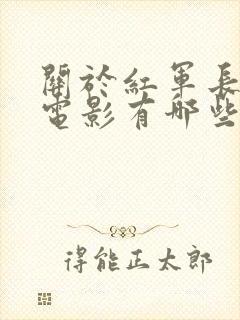 關於紅軍長
電影有哪些
得能正太郎